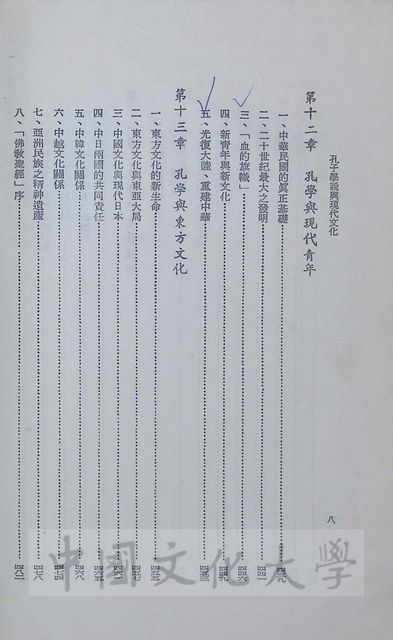 孔子學說與現代文化
八
第十二章　孔學與現代青年
一、中華民國的真正基礎……四三九
二、二十世紀最大之發明……四四一
三、「血的旗幟」……四四六
四、新青年與新文化……四四九
五、光復大陸、重建中華……四五三
第十三章　孔學與東方文化
一、東方文化的新生命……四五五
二、東方文化與東亞大局……四五七
三、中國文化與現代日本……四六一
四、中日兩國的共同責任……四六五
五、中韓文化關係……四六八
六、中越文化關係……四七四
七、亞洲民族之精神遺產……四七八
八、「佛教聖經」序……四八二
中國文化大學